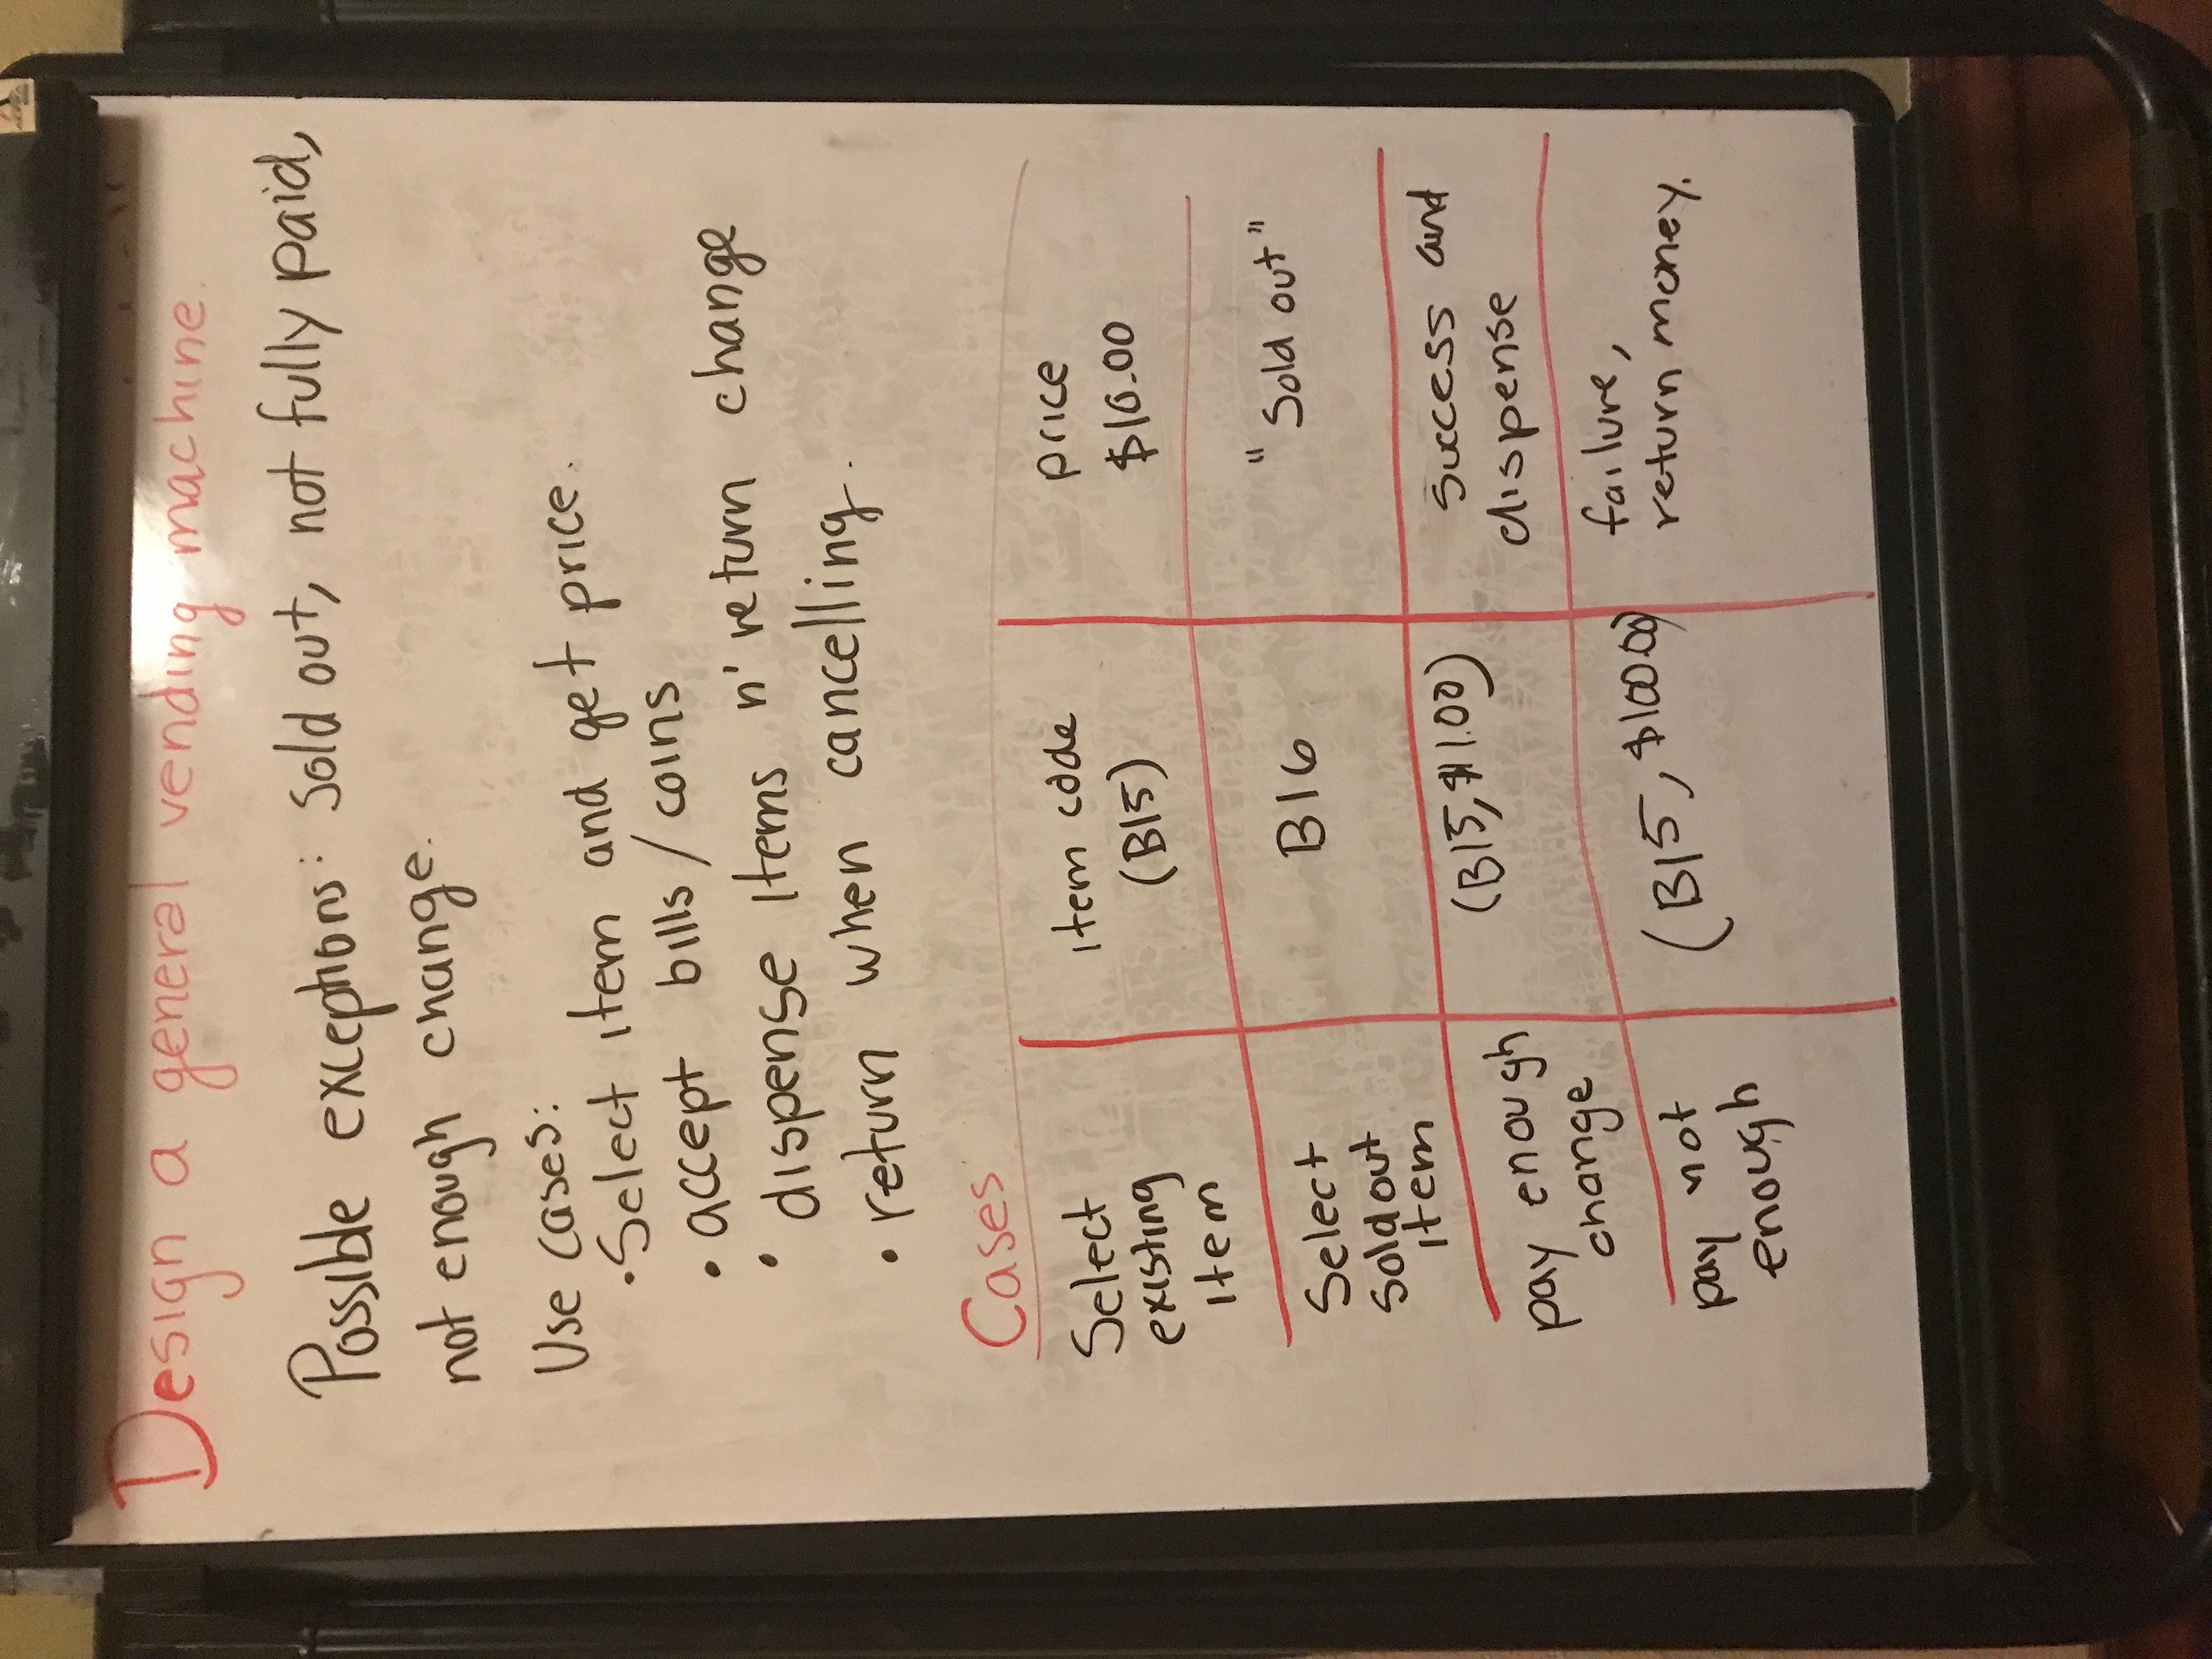 Design a general vending machine.
Possible exceptions: Sold out, not fully paid,
not enough change.
Use cases:
• Select item and get price.
• accept bills / coins
• dispense items n' return change
• return when cancelling.
Cases
Select existing item
item code (B15)
price $10.00
Select sold out item
B16
"Sold out"
pay enough change
(B15, $1.00)
success and dispense
pay not enough
(B15, $100.00)
failure, return money.